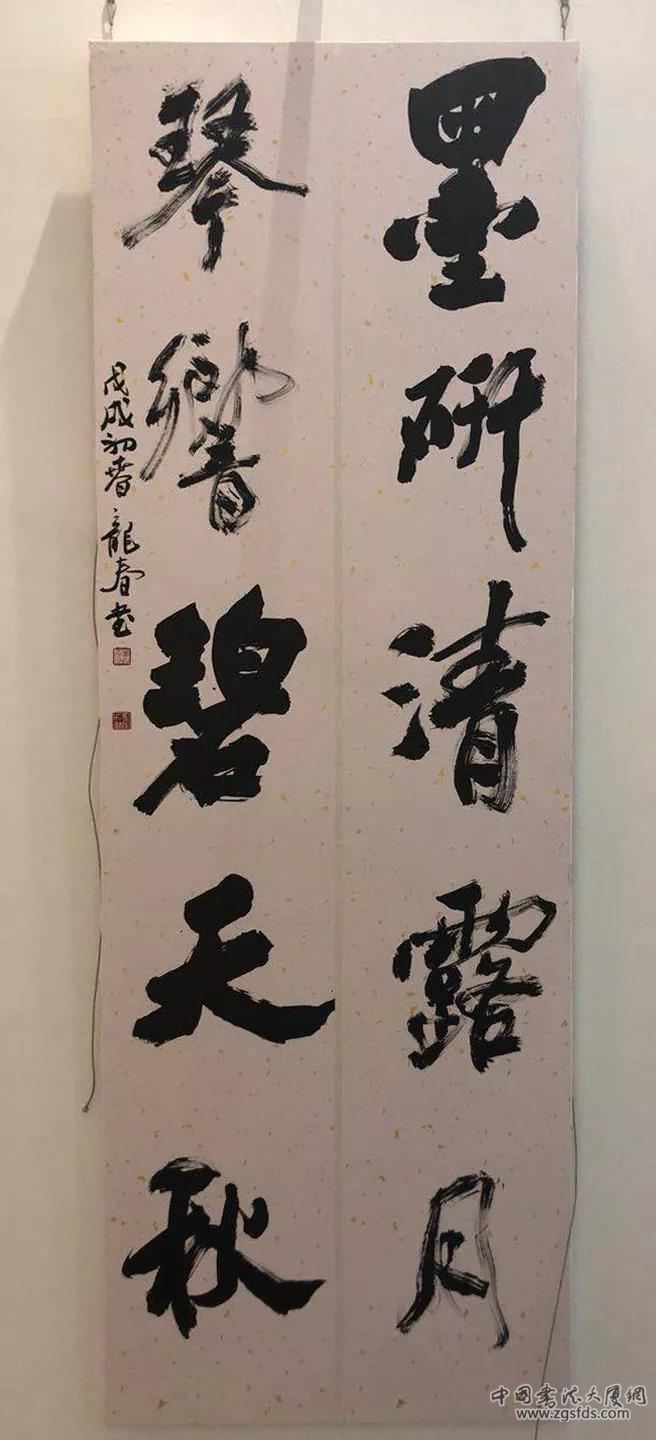 墨研清露月
琴響碧天秋
戊戌初春龍春书
中国书法大厦網
www.zgsfds.com